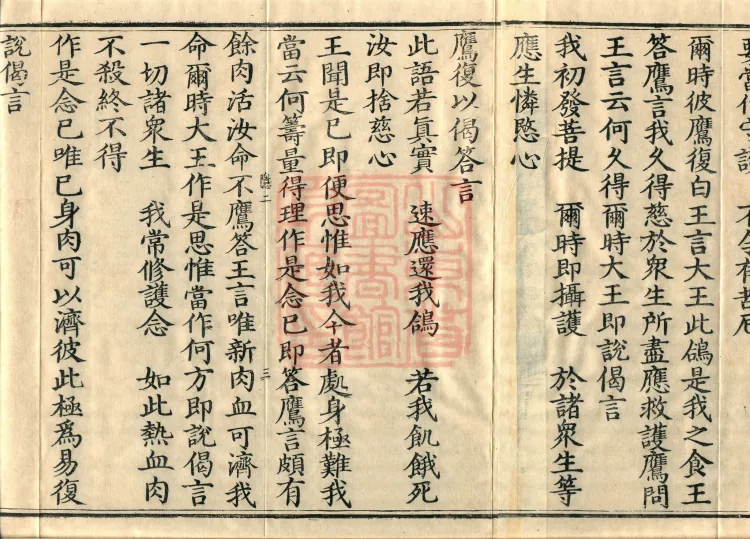 爾時彼鷹復白王言大王此鴿是我之食王
答鷹言我久得慈於衆生所盡應救護鷹問
王言云何久得爾時大王即說偈言
我初發菩提　爾時即攝護　於諸衆生等
應生憐愍心
鷹復以偈答言
此語若眞實　速應還我鴿　若我飢餓死
汝即捨慈心
王聞是已即便思惟如我今者處身極難我
當云何籌量得理作是念已即答鷹言頗有
應二　三
餘肉活汝命不鷹答王言唯新肉血可濟我
命爾時大王作是思惟當作何方即說偈言
一切諸衆生　我常修護念　如此熱血肉
不殺終不得
作是念已唯己身肉可以濟彼此極爲易復
說偈言